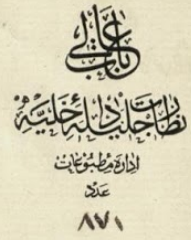 باب عالی
نظارت جلیلهٔ داخلیه
ادارهٔ مطبوعات
عدد
٨٧١